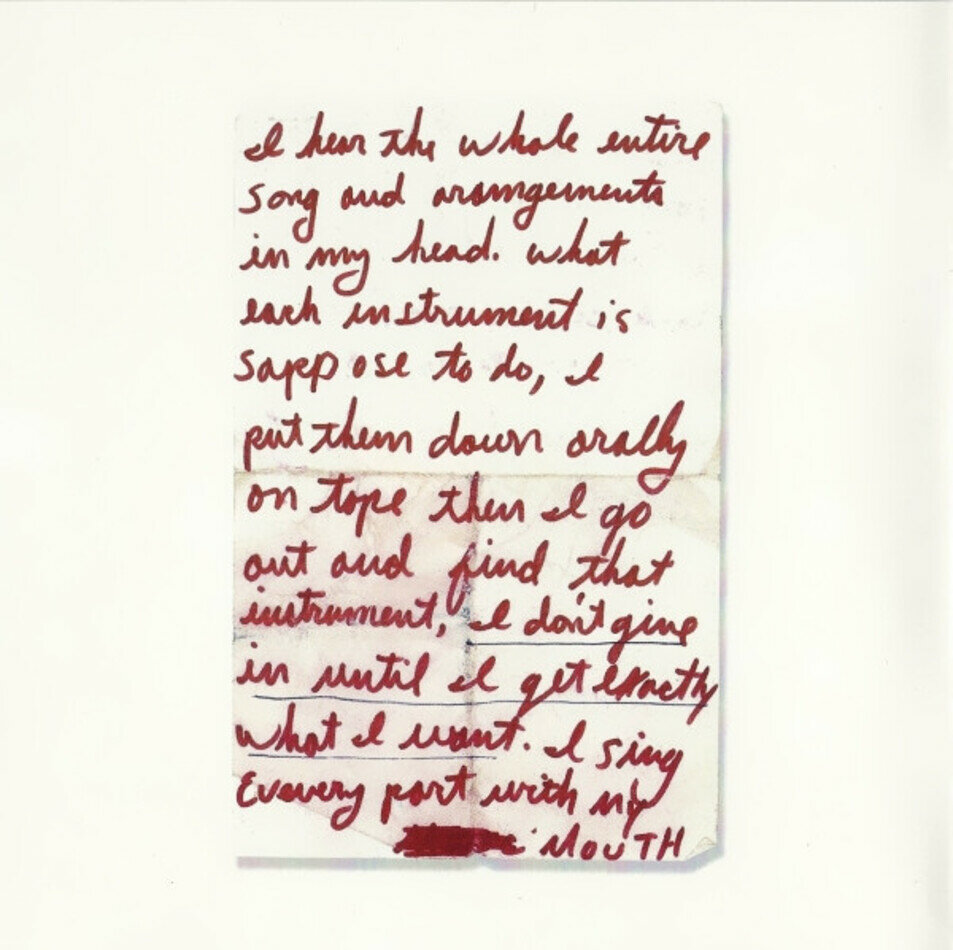 I hear the whole entire
song and arangements
in my head. what
each instrument is
suppose to do, I
put them down orally
on tape then I go
out and find that
instrument, I don't give
in until I get exactly
what I want. I sing
Evevery part with my
MOUTH